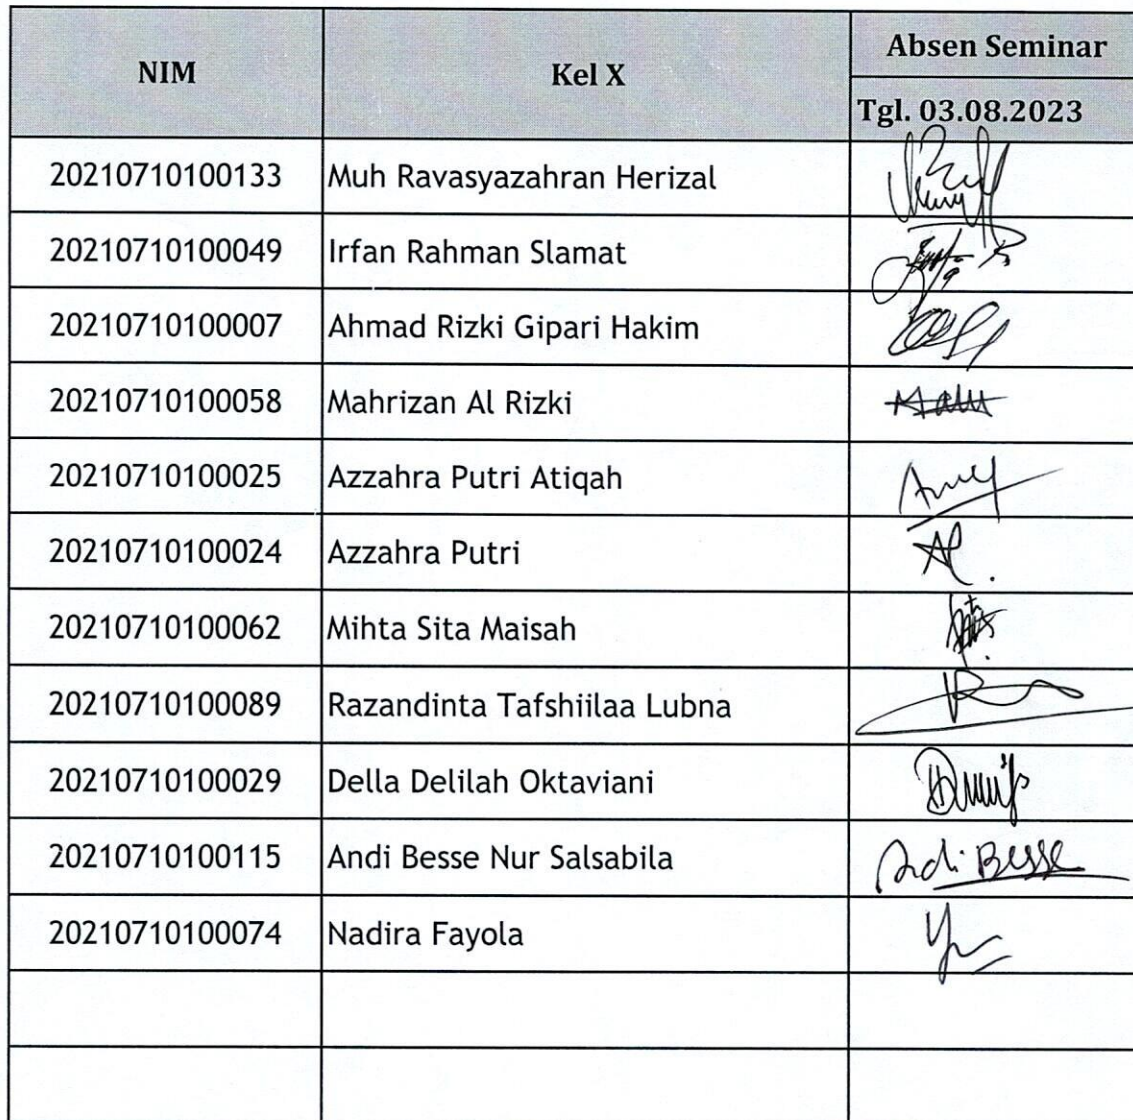 NIM Kel X Absen Seminar
Tgl. 03.08.2023
20210710100133 Muh Ravasyazahran Herizal
20210710100049 Irfan Rahman Slamat
20210710100007 Ahmad Rizki Gipari Hakim
20210710100058 Mahrizan Al Rizki
20210710100025 Azzahra Putri Atiqah
20210710100024 Azzahra Putri
20210710100062 Mihta Sita Maisah
20210710100089 Razandinta Tafshiilaa Lubna
20210710100029 Della Delilah Oktaviani
20210710100115 Andi Besse Nur Salsabila Andi Besse
20210710100074 Nadira Fayola